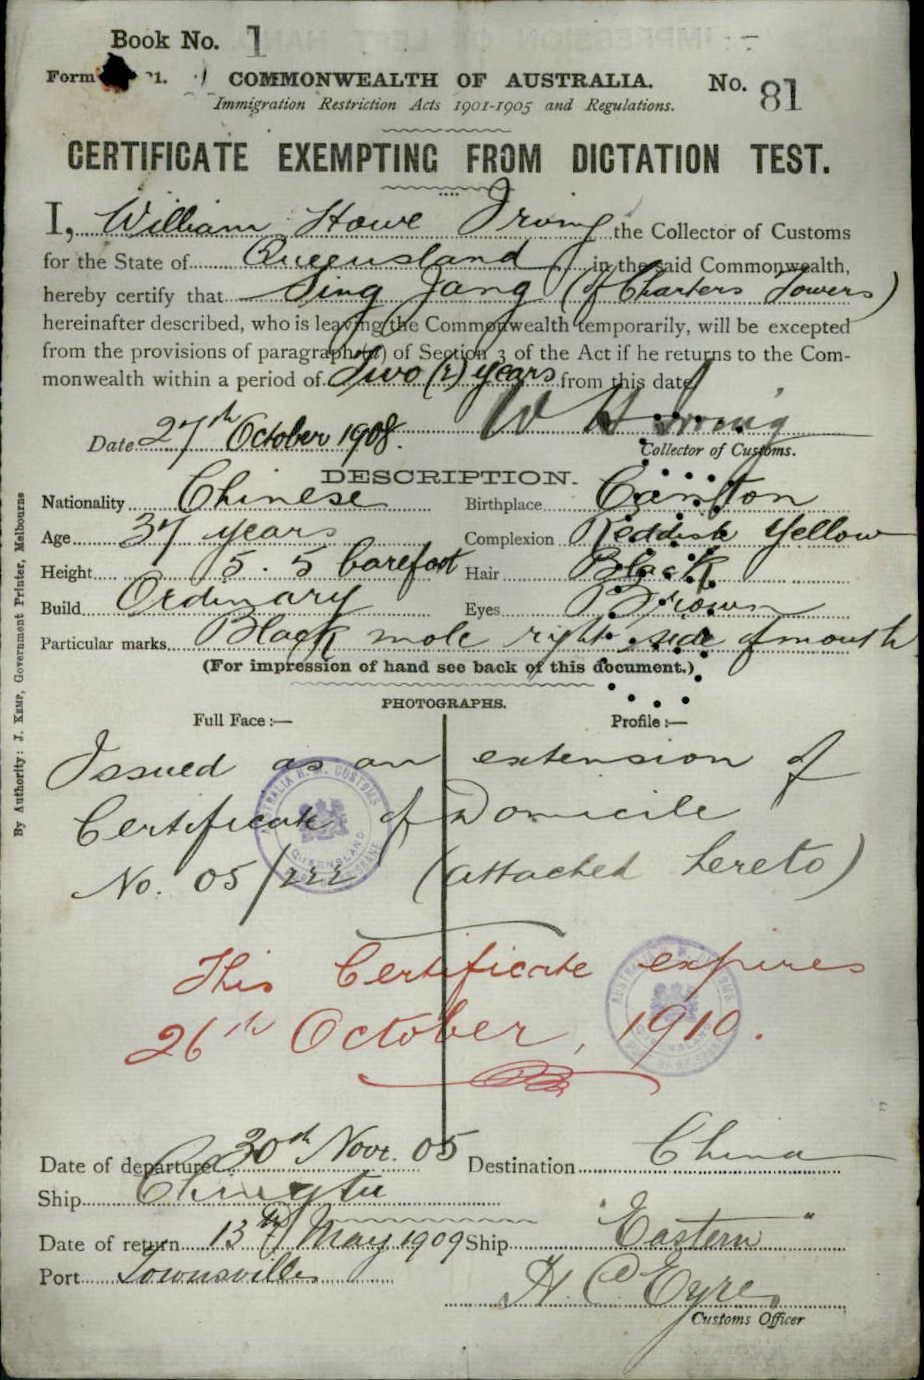 Book No. 1
Form 21.
COMMONWEALTH OF AUSTRALIA.
No. 81
Immigration Restriction Acts 1901-1905 and Regulations.
CERTIFICATE EXEMPTING FROM DICTATION TEST.
I, William Howe Irving the Collector of Customs
for the State of Queensland in the said Commonwealth,
hereby certify that Sing Jang (of Charters Towers)
hereinafter described, who is leaving the Commonwealth temporarily, will be excepted
from the provisions of paragraph (a) of Section 3 of the Act if he returns to the Com-
monwealth within a period of Two (2) years from this date.
W H Irving
Date 27th October 1908.
Collector of Customs.
DESCRIPTION.
Nationality Chinese Birthplace Canton
Age 37 years Complexion Reddish Yellow
Height 5. 5 barefoot Hair Black
Build Ordinary Eyes Brown
Particular marks Black mole right side of mouth
(For impression of hand see back of this document.)
PHOTOGRAPHS.
Full Face :— Profile :—
Issued as an extension of
Certificate of Domicile
No. 05/222 (attached hereto)
This Certificate expires
26th October, 1910.
Date of departure 30th Novr. 05 Destination China
Ship Chingtu
Date of return 13th May 1909 Ship "Eastern"
Port Townsville
H. C. Eyre
Customs Officer
By Authority: J. KEMP, Government Printer, Melbourne